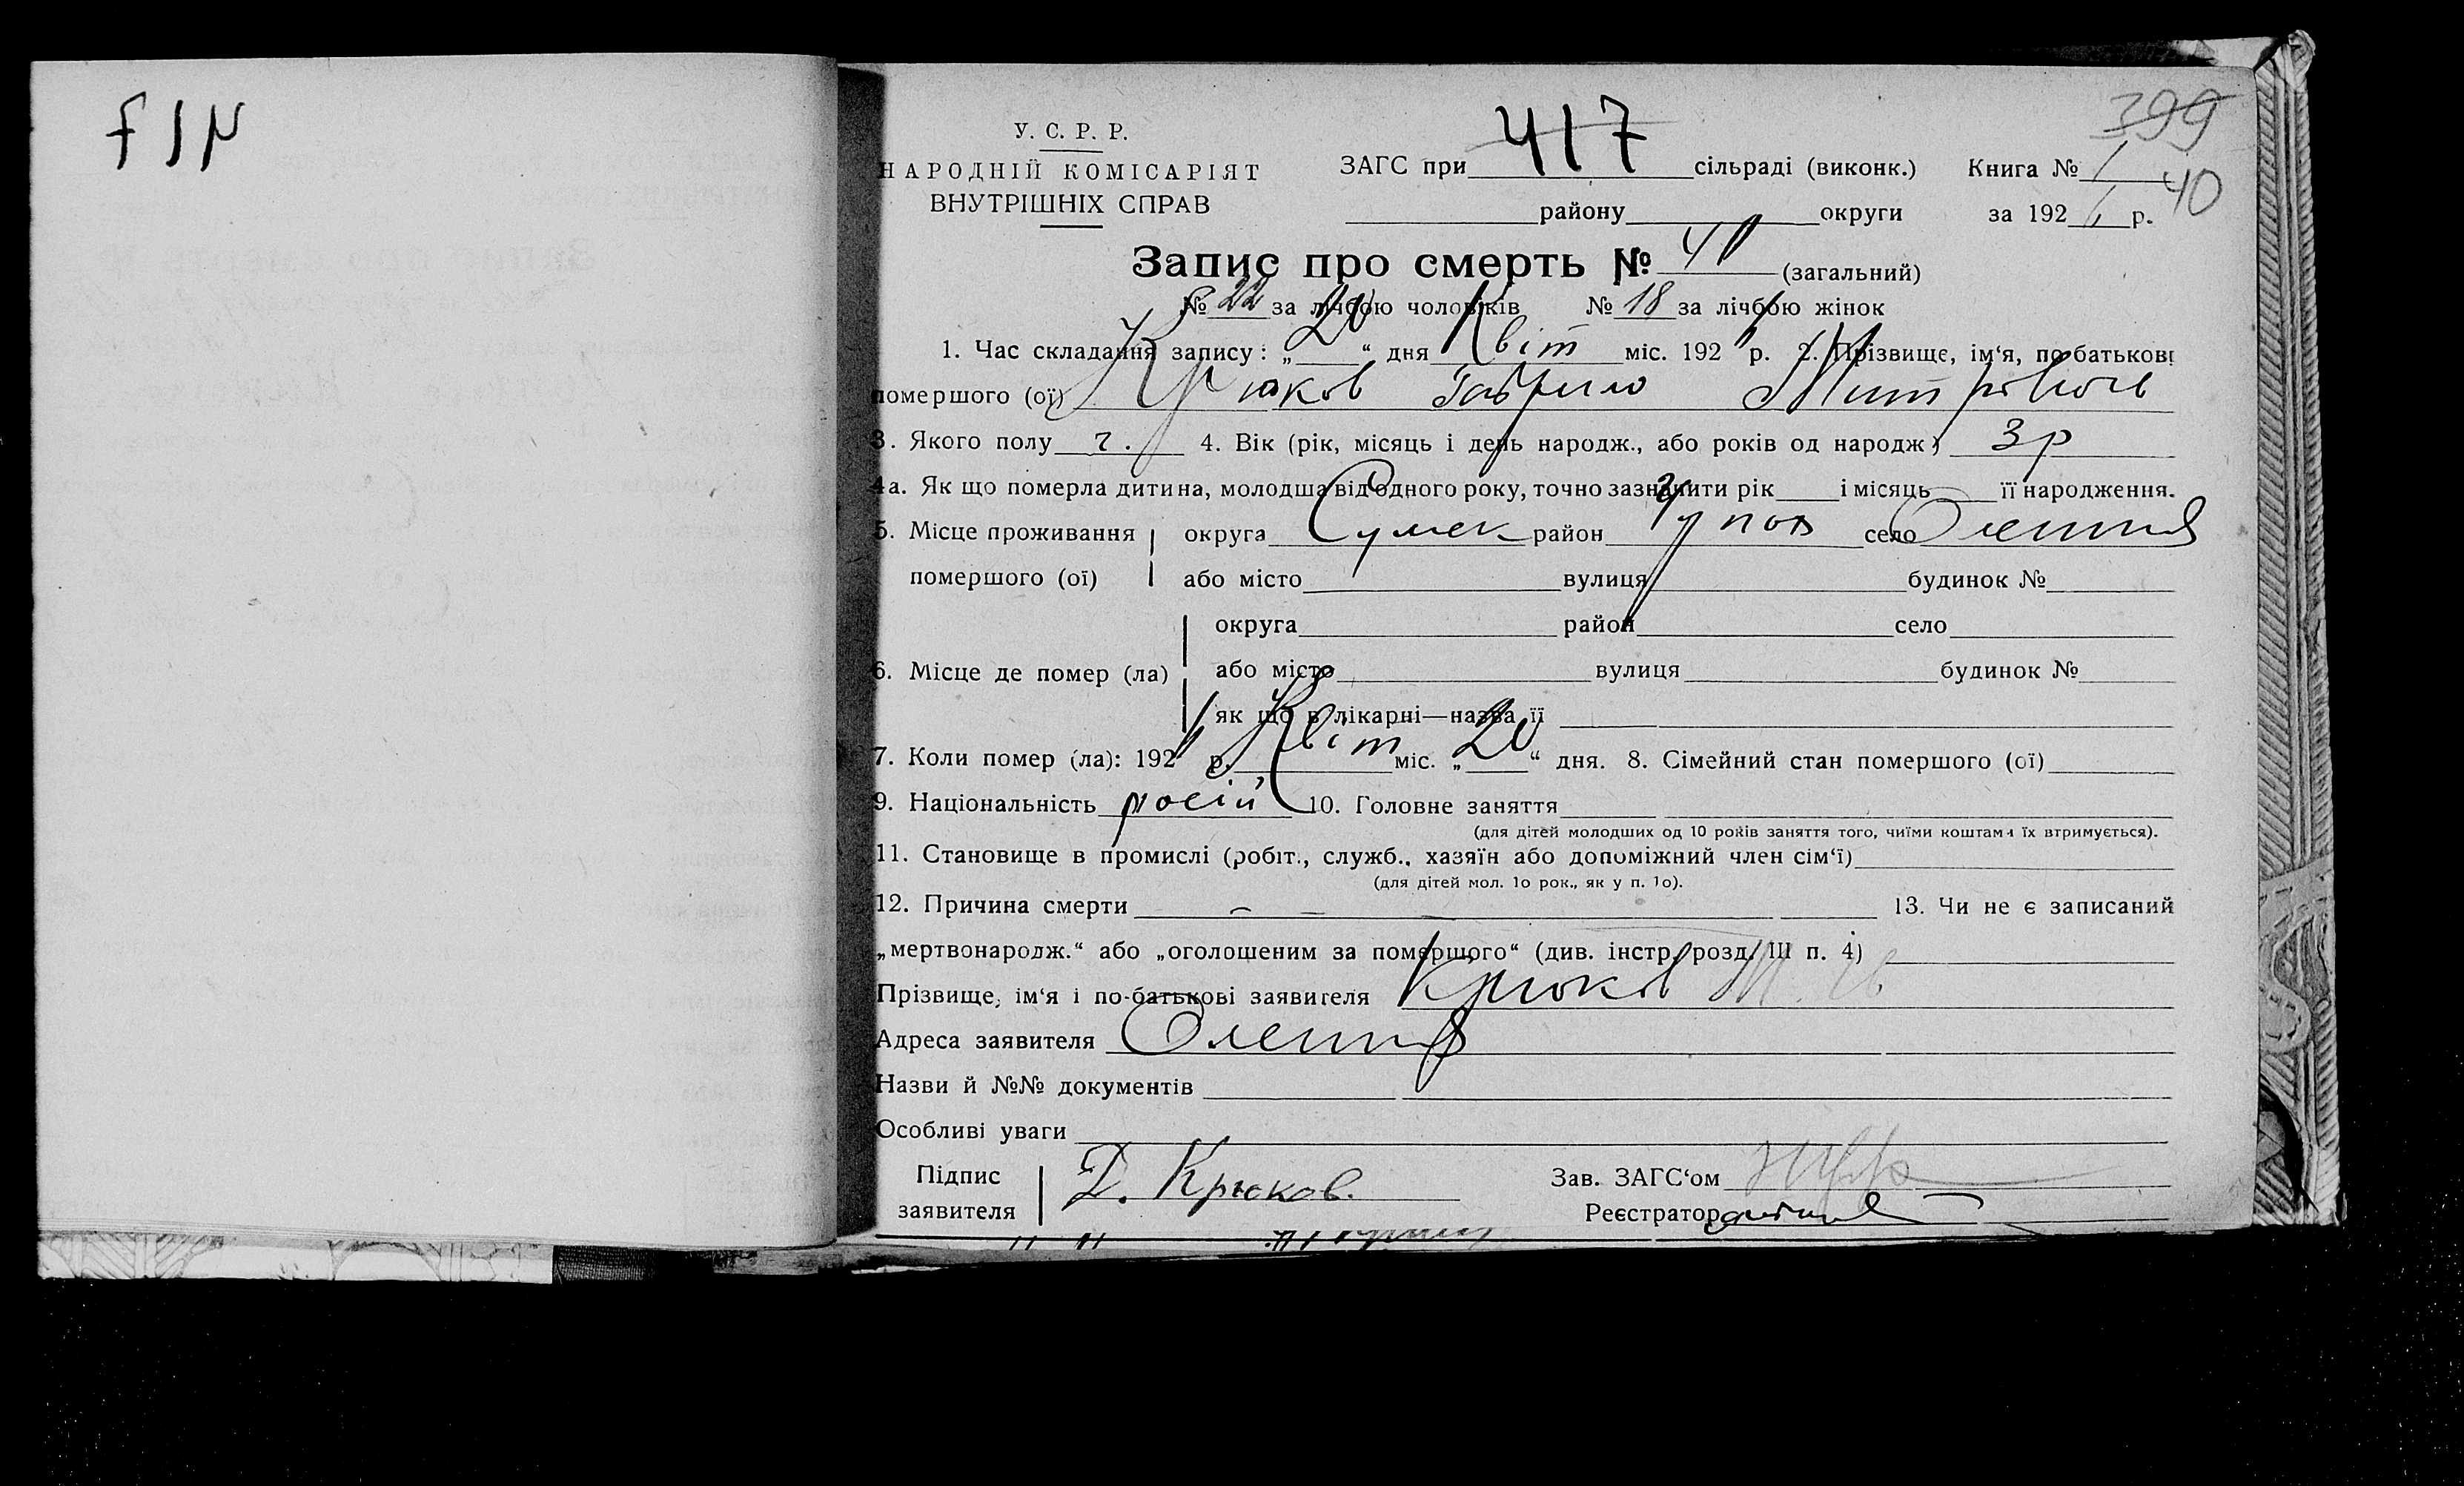 417
399
У. С. Р. Р.
НАРОДНІЙ КОМІСАРІЯТ
ВНУТРІШНІХ СПРАВ
ЗАГС при 417 сільраді (виконк.) Книга № 1
40
району округи за 192 р.
Запис про смерть № 40 (загальний)
№ 22 за лічбою чоловіків № 18 за лічбою жінок
1. Час складання запису: „20“ дня Квіт міс. 192 р. 2. Прізвище, ім‘я, по батькові
помершого (ої) Крюков Гаврило
3. Якого полу ч. 4. Вік (рік, місяць і день народж., або років од народж) 3 р
4а. Як що померла дитина, молодша від одного року, точно зазначити рік і місяць її народження.
5. Місце проживання округа Сумск район село
помершого (ої) або місто вулиця будинок №
округа район село
6. Місце де помер (ла) або місто вулиця будинок №
як що в лікарні—назва її
7. Коли помер (ла): 192 р. Квіт міс. „20“ дня. 8. Сімейний стан помершого (ої)
9. Національність росій 10. Головне заняття
(для дітей молодших од 10 років заняття того, чиїми коштами їх втримується).
11. Становище в промислі (робіт., служб., хазяїн або допоміжний член сім‘ї)
(для дітей мол. 1о рок., як у п. 1о).
12. Причина смерти — — 13. Чи не є записаний
„мертвонародж.“ або „оголошеним за помершого“ (див. інстр. розд. III п. 4)
Прізвище, ім‘я і по-батькові заявителя Крюков
Адреса заявителя
Назви й №№ документів
Особливі уваги
Підпис
заявителя Д. Крюков.
Зав. ЗАГС‘ом
Реєстратор